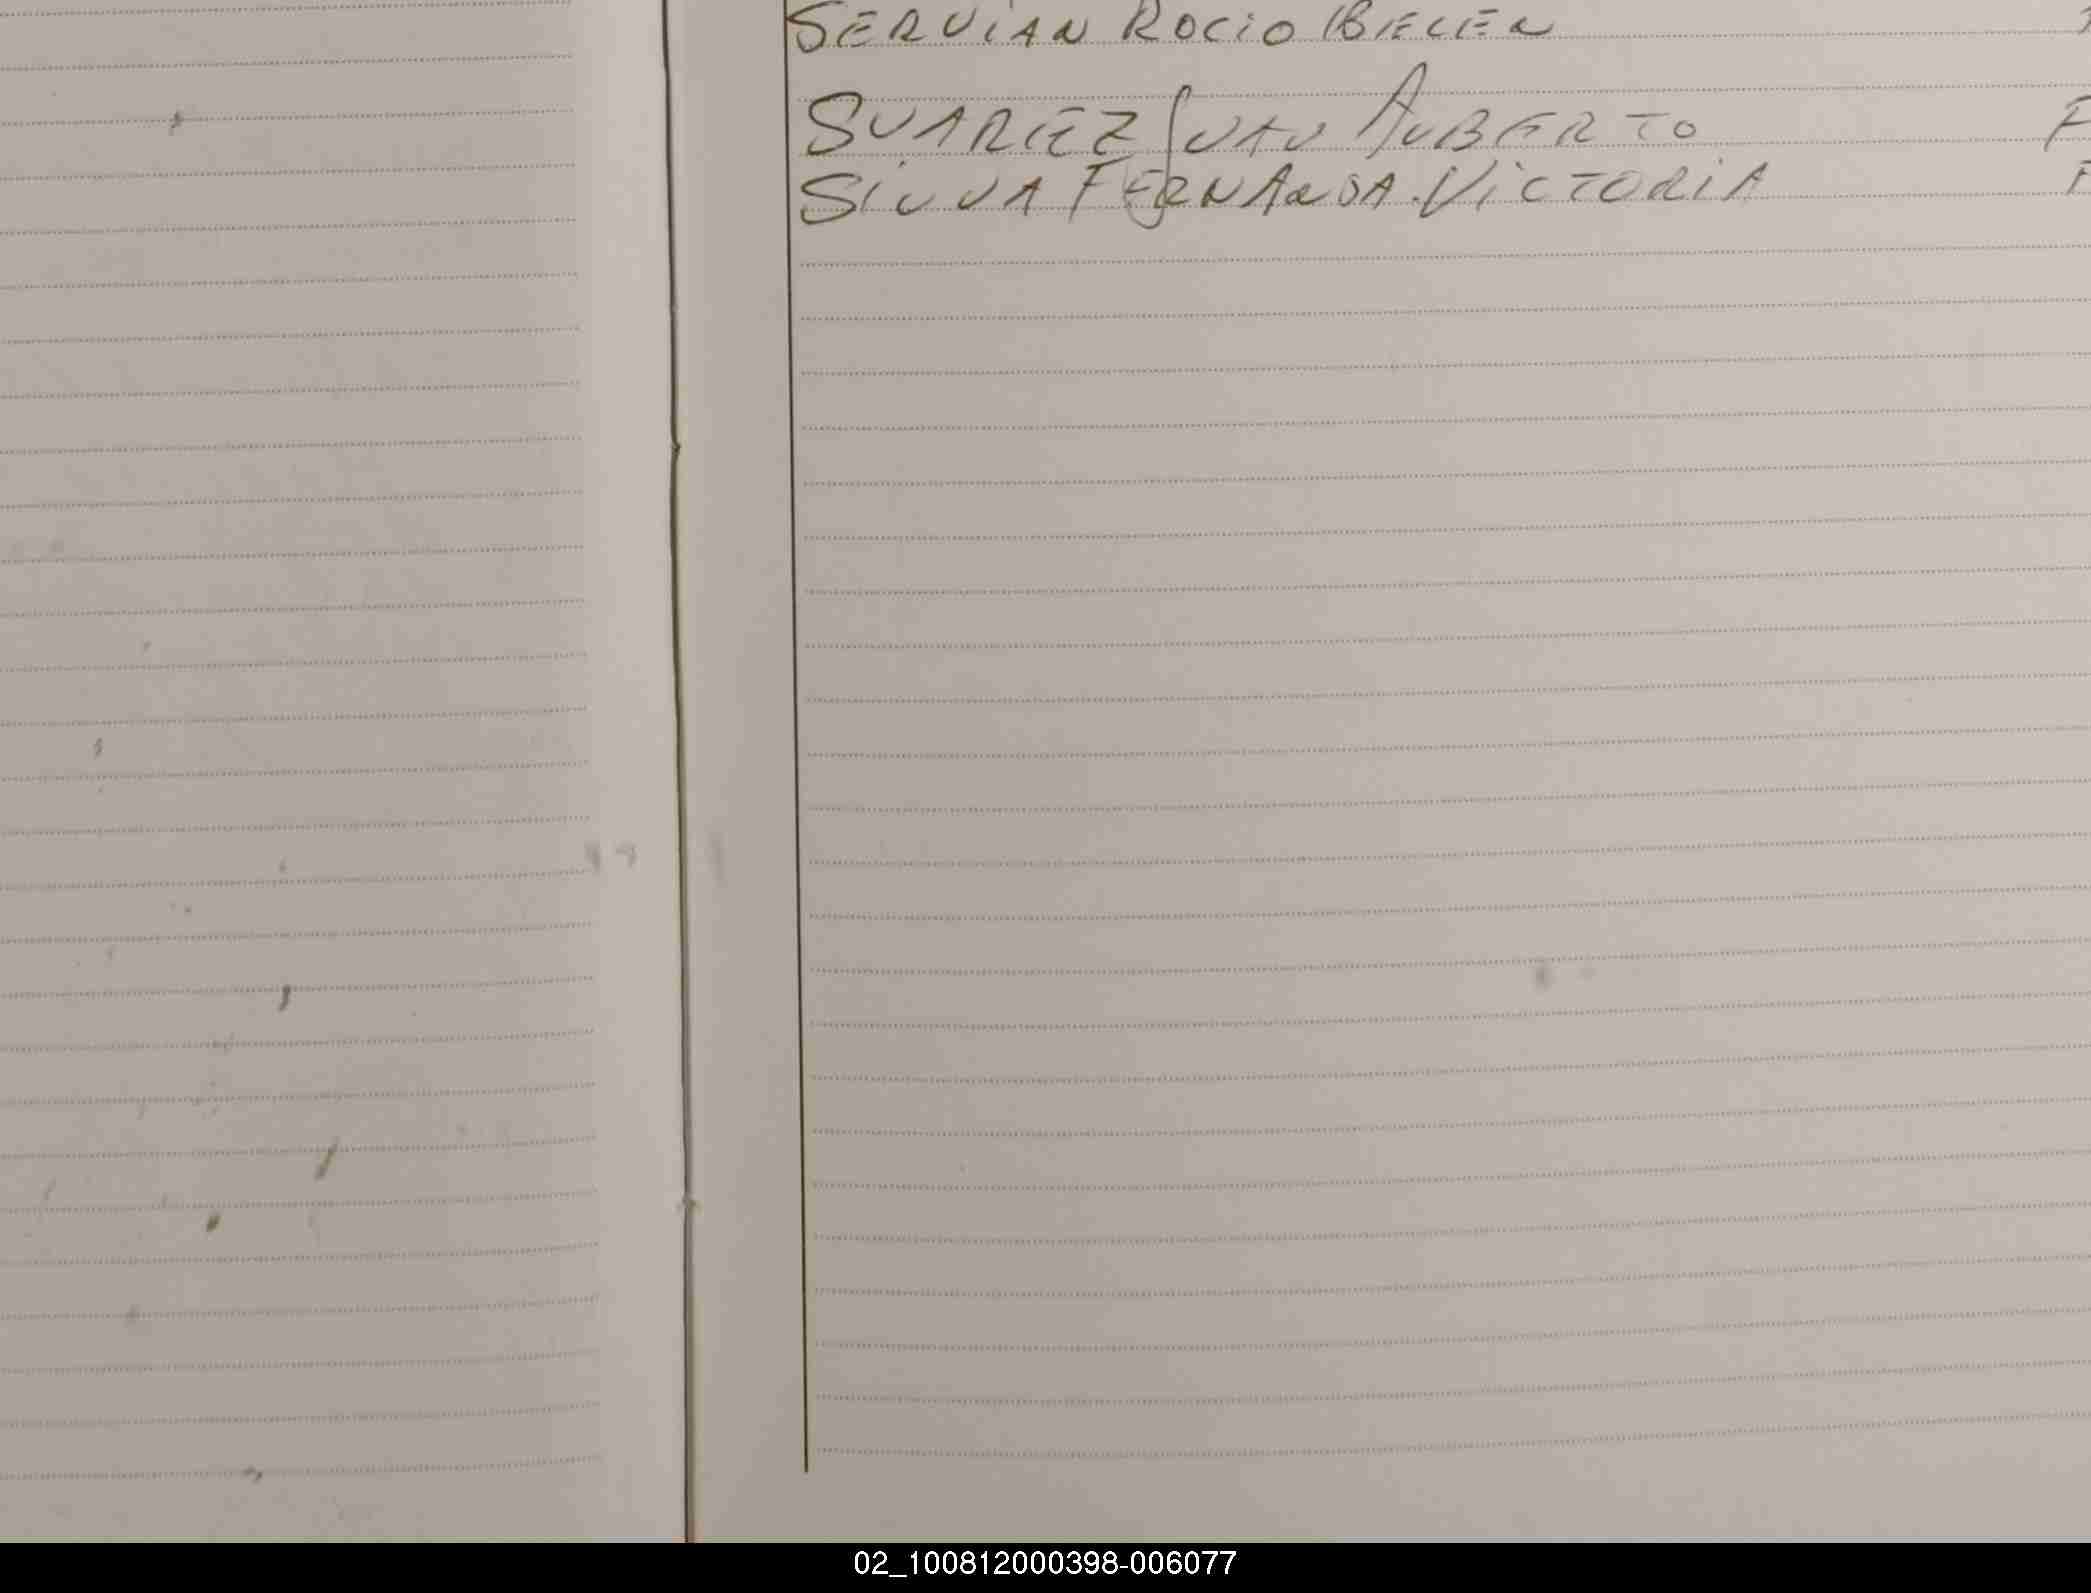 SERVIAN ROCIO BELEN
SUAREZ JUAN ALBERTO F
SILVA FERNANDA VICTORIA F
02_100812000398-006077